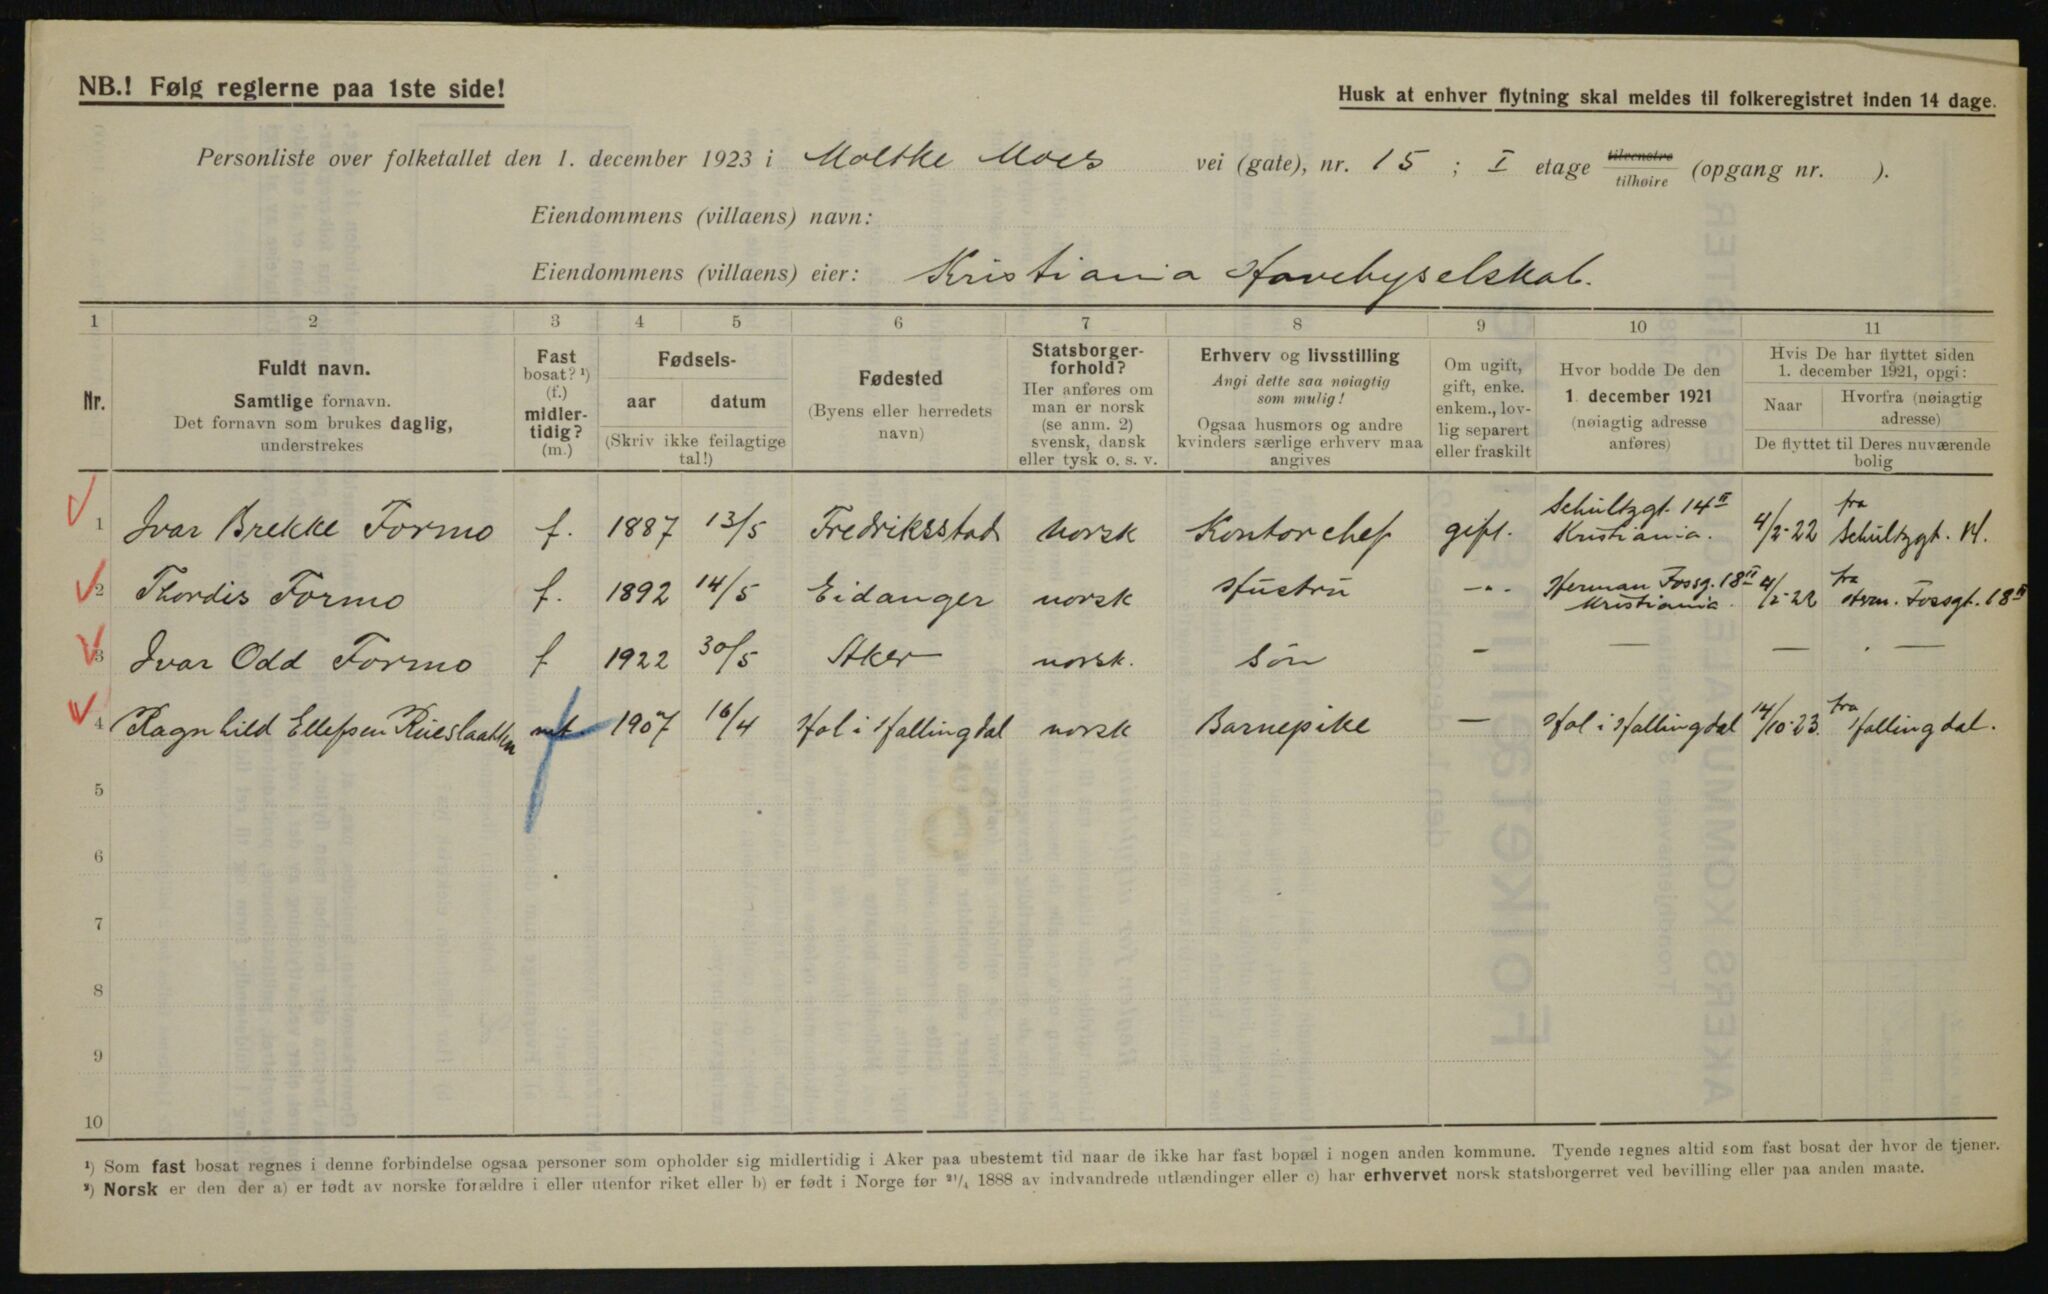 NB.! Følg reglerne paa 1ste side!
Husk at enhver flytning skal meldes til folkeregistret inden 14 dage.
Personliste over folketallet den 1. december 1923 i Moltke Moes vei (gate), nr. 15 ; I etage tilvenstre / tilhøire (opgang nr. ).
Eiendommens (villaens) navn:
Eiendommens (villaens) eier: Kristiania Havebyselskab.
1 2 3 4 5 6 7 8 9 10 11
Nr.
Fuldt navn.
Samtlige fornavn.
Det fornavn som brukes daglig,
understrekes
Fast
bosat? ¹)
(f.)
midler-
tidig?
(m.)
Fødsels-
aar datum
(Skriv ikke feilagtige
tal!)
Fødested
(Byens eller herredets
navn)
Statsborger-
forhold?
Her anføres om
man er norsk
(se anm. 2)
svensk, dansk
eller tysk o. s. v.
Erhverv og livsstilling
Angi dette saa nøiagtig
som mulig!
Ogsaa husmors og andre
kvinders særlige erhverv maa
angives
Om ugift,
gift, enke.
enkem., lov-
lig separert
eller fraskilt
Hvor bodde De den
1. december 1921
(nøiagtig adresse
anføres)
Hvis De har flyttet siden
1. december 1921, opgi:
Naar Hvorfra (nøiagtig
adresse)
De flyttet til Deres nuværende
bolig
1 Ivar Brekke Formo f. 1887 13/5 Fredriksstad Norsk Kontorchef gift. Schultzgt. 14 II Kristiania. 4/2-22 fra Schultzgt. 14.
2 Thordis Formo f. 1892 14/5 Eidanger norsk Hustru -"- Herman Fossg. 18 II Kristiania. 4/2-22 fra Herm. Fossgt. 18 II
3 Ivar Odd Formo f 1922 30/5 Aker norsk. Søn - — — —
4 Ragnhild Ellefsen 1907 16/4 Hol i Hallingdal norsk Barnepike — Hol i Hallingdal 14/10-23. fra Hallingdal.
5
6
7
8
9
10
¹) Som fast bosat regnes i denne forbindelse ogsaa personer som opholder sig midlertidig i Aker paa ubestemt tid naar de ikke har fast bopæl i nogen anden kommune. Tyende regnes altid som fast bosat der hvor de tjener.
²) Norsk er den der a) er født av norske forældre i eller utenfor riket eller b) er født i Norge før ²¹/₄ 1888 av indvandrede utlændinger eller c) har erhvervet norsk statsborgerret ved bevilling eller paa anden maate.